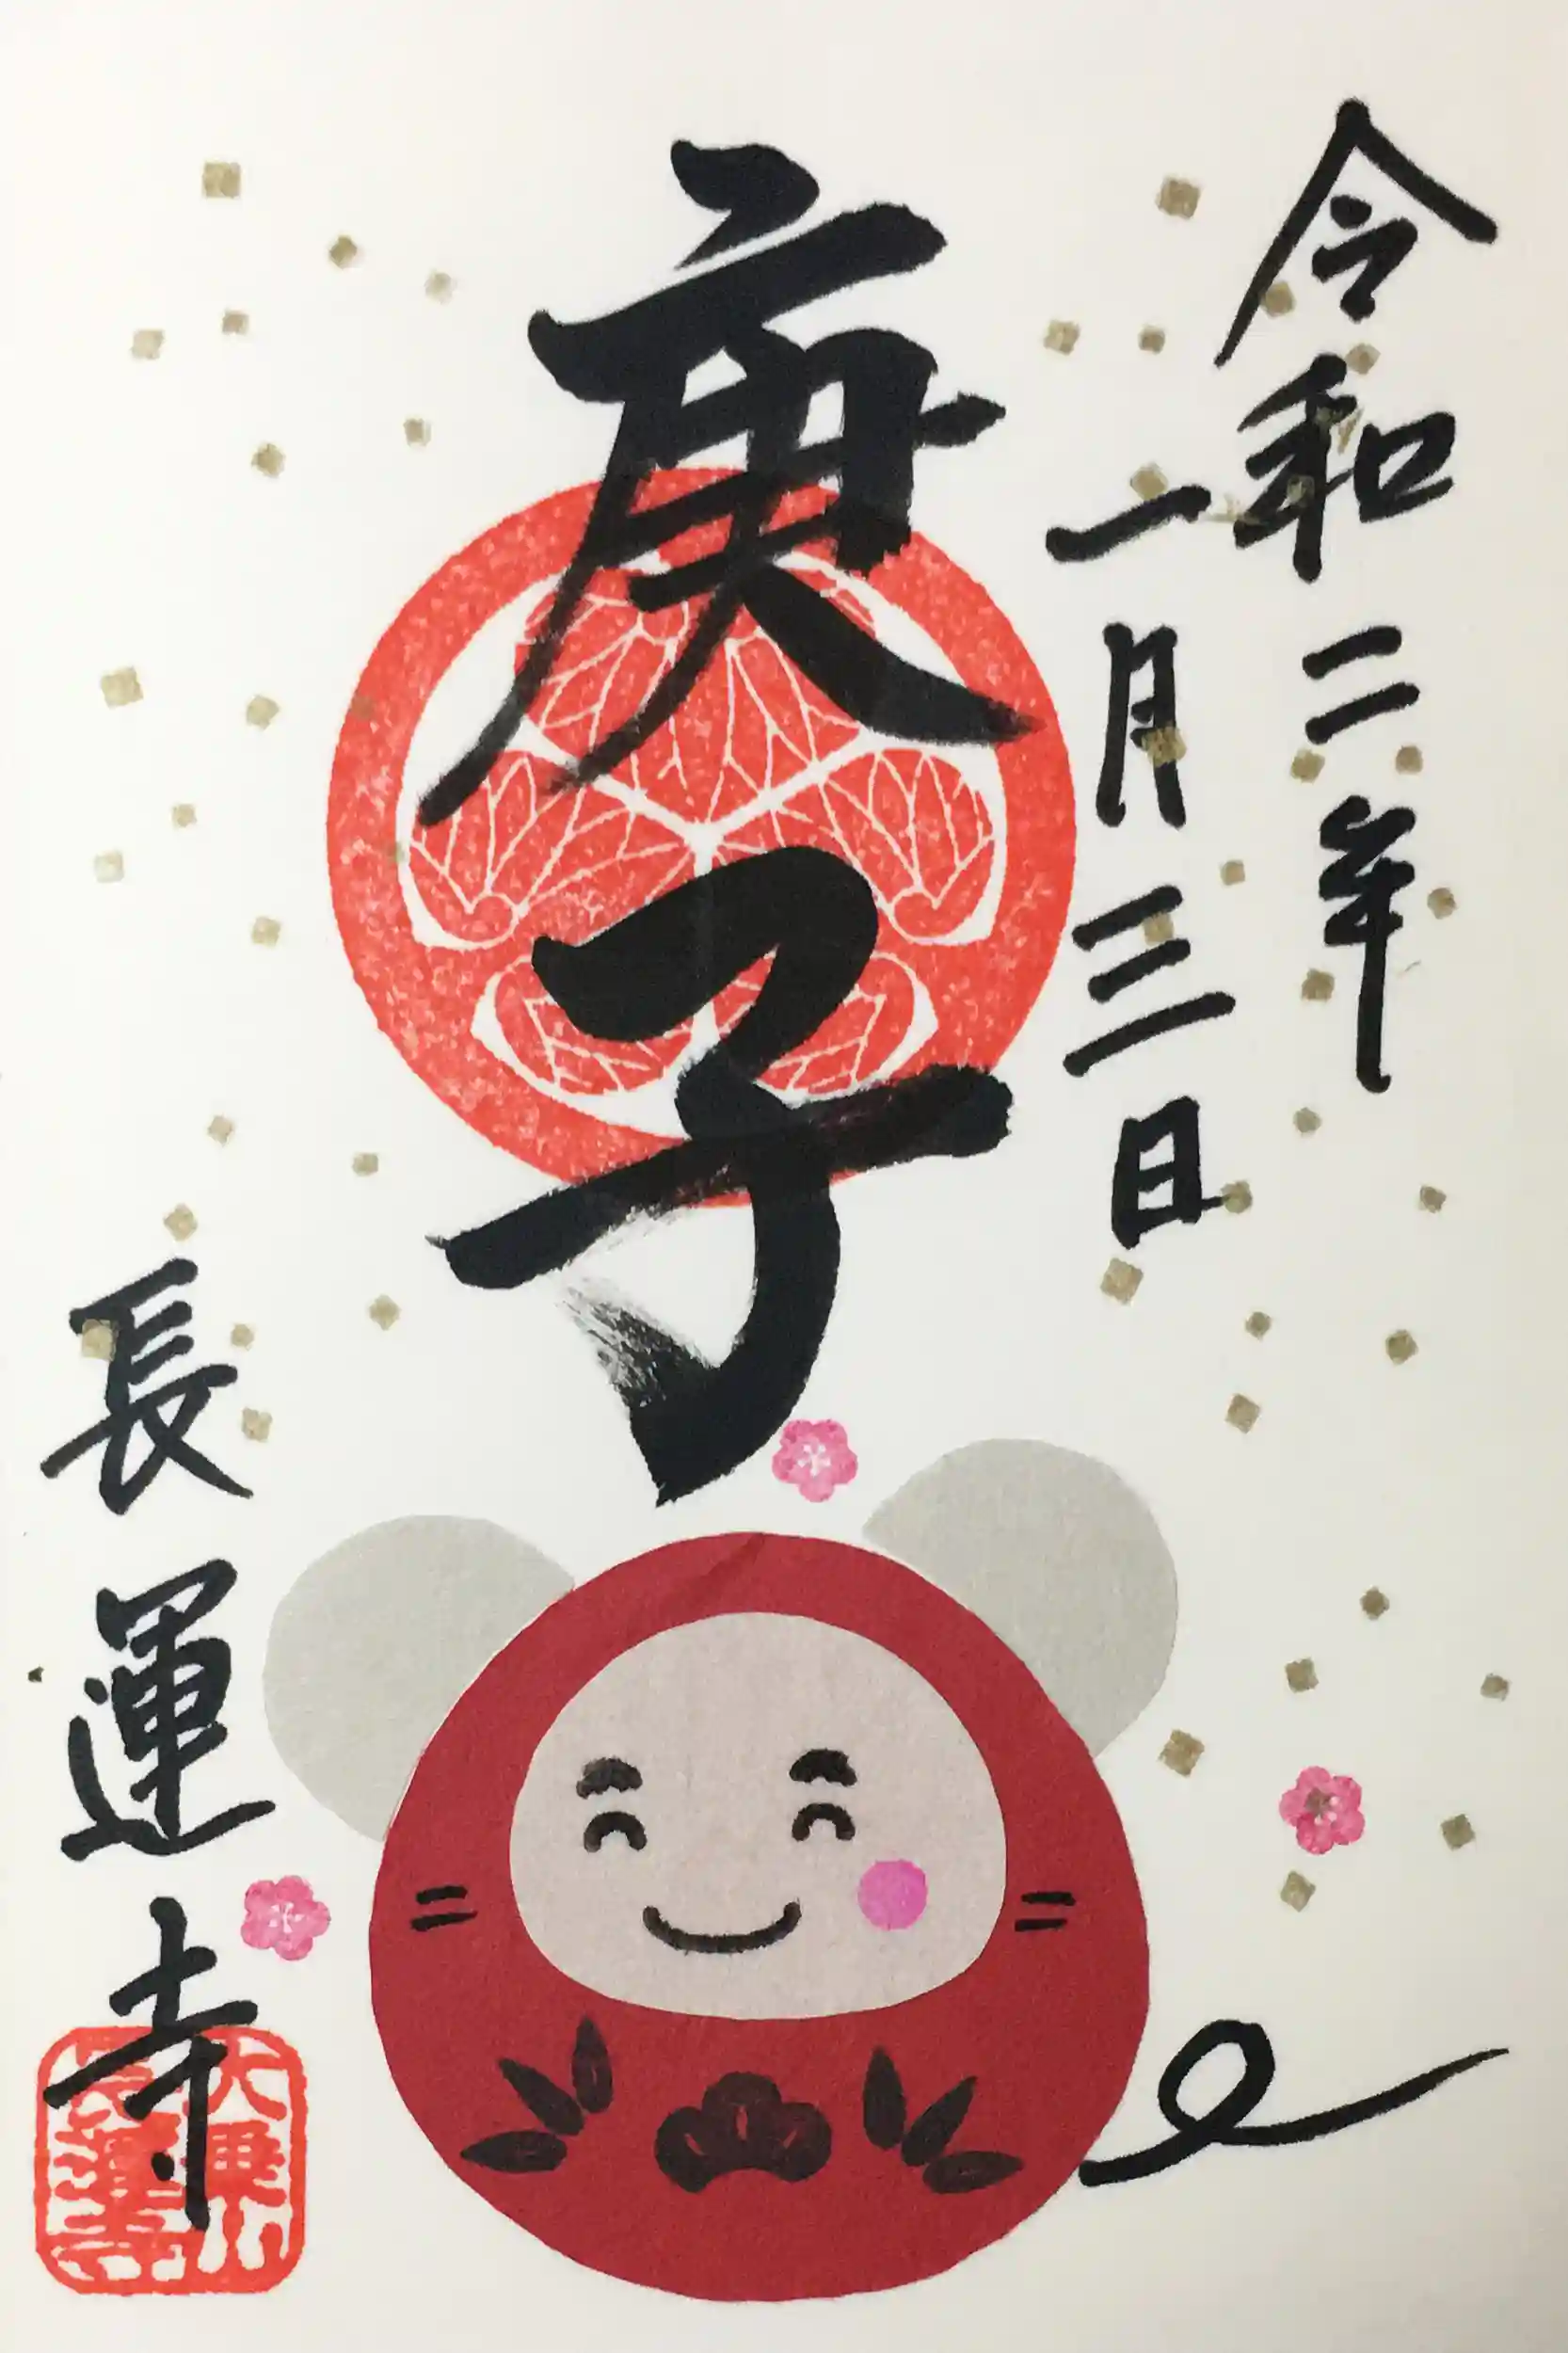 令和二年
一月三日
庚子
長運寺